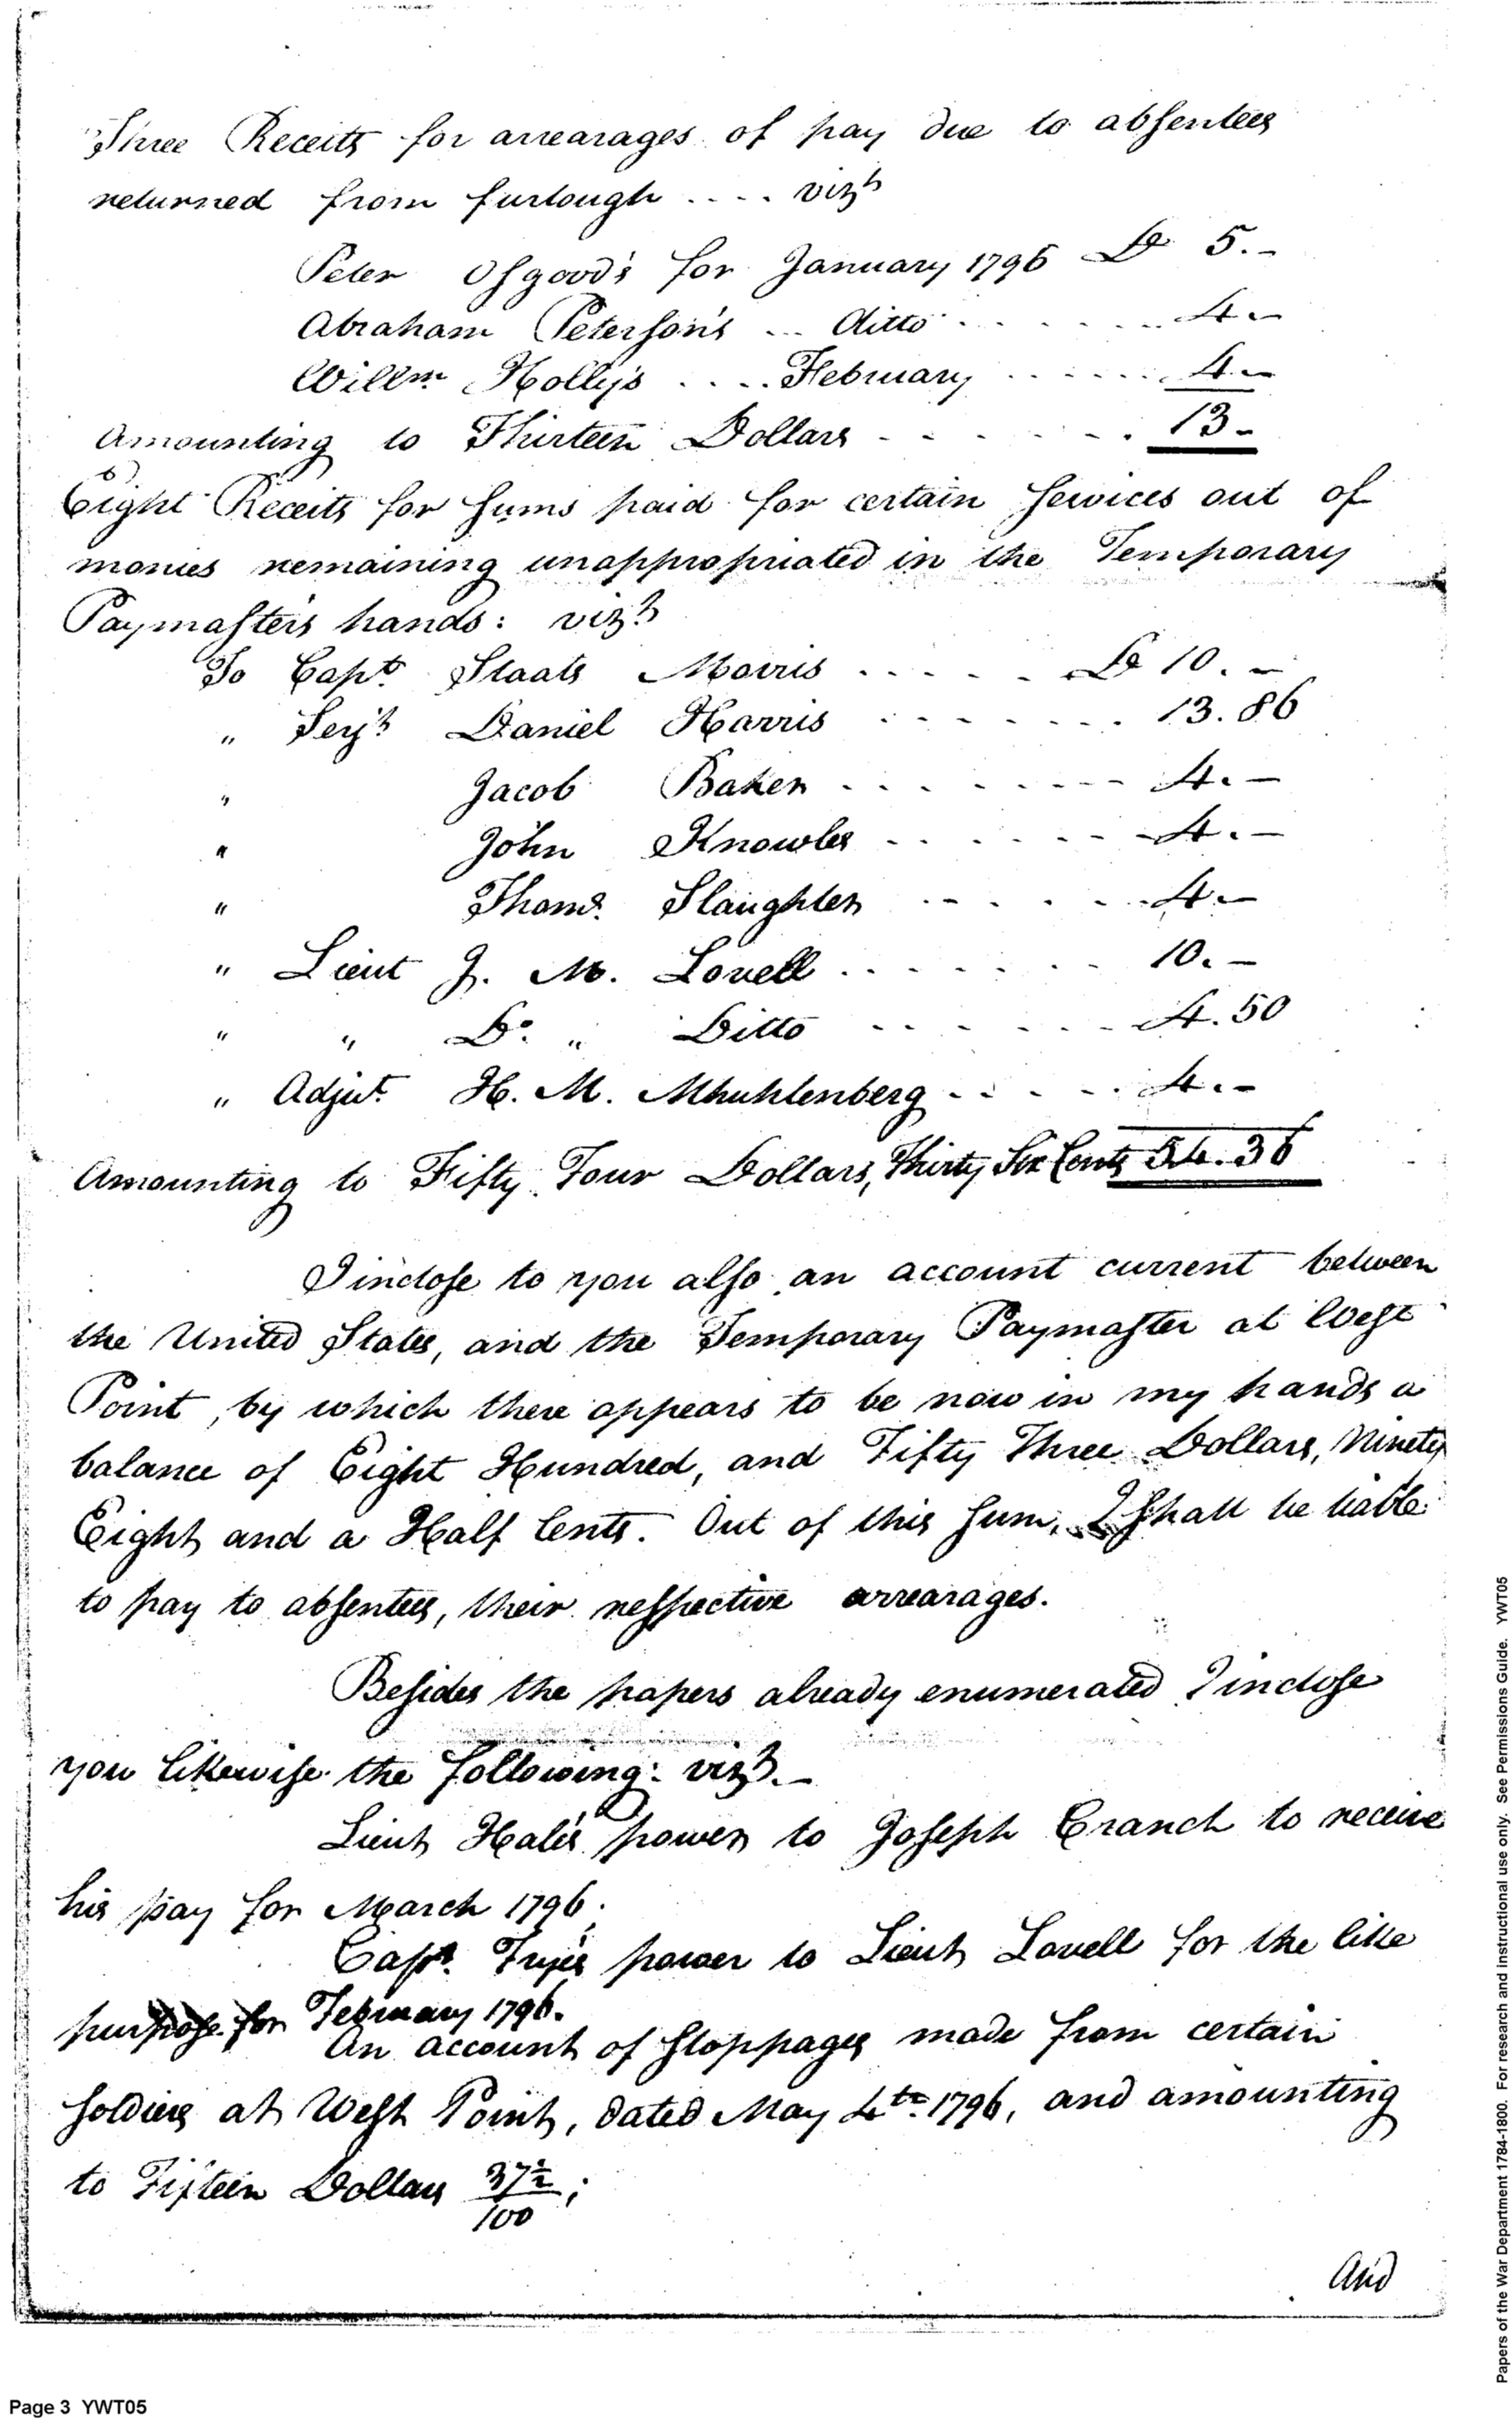 Three Receits for arrearages of pay due to absentees
returned from furlough .... vizt
Peter Osgood's for January 1796 D 5.-
Abraham Peterson's ... Ditto . . . . . . 4.-
Willm Holly's . . . . February . . . . . . 4.-
Amounting to Thirteen Dollars - - - - - - . 13-
Eight Receits for sums paid for certain services out of
monies remaining unappropriated in the Temporary
Paymaster's hands: vizt
To Capt. Staats Morris . . . . . D 10. -
" Serjt Daniel Harris . . . . . . . 13.86
" Jacob Baker . . . . . . . . 4. -
" John Knowles . . . . . . . 4. -
" Thoms. Slaughter . . . . . 4. -
" Lieut J. M. Lovell . . . . . . . 10. -
" " Do. " Ditto . . . . . . . 4.50
" Adjut. H. M. Mhuhlenberg . . . . 4. -
Amounting to Fifty Four Dollars, Thirty Six Cents 54.36
I inclose to you also an account current between
the United States, and the Temporary Paymaster at West
Point, by which there appears to be now in my hands a
balance of Eight Hundred, and Fifty Three Dollars, Ninety
Eight and a Half Cents. Out of this sum, I shall be liable
to pay to absentees, their respective arrearages.
Besides the papers already enumerated I inclose
you likewise the following: vizt. -
Lieut Hale's power to Joseph Cranch to receive
his pay for March 1796;
Capt. Frye's power to Lieut Lovell for the like
purpose for February 1796.
An account of stoppages made from certain
soldiers at West Point, dated May 4th 1796, and amounting
to Fifteen Dollars 37½/100;
And
Page 3 YWT05
Papers of the War Department 1784-1800. For research and instructional use only. See Permissions Guide. YWT05